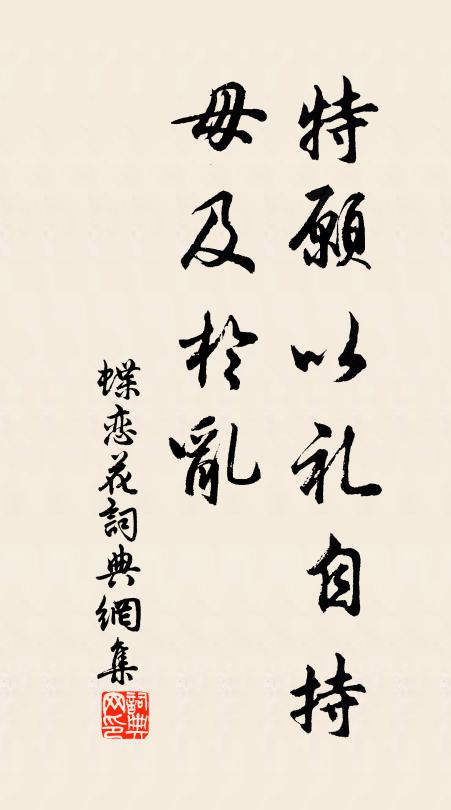 特願以礼自持
毋及於亂
蝶恋花詞典網集
詞典网印